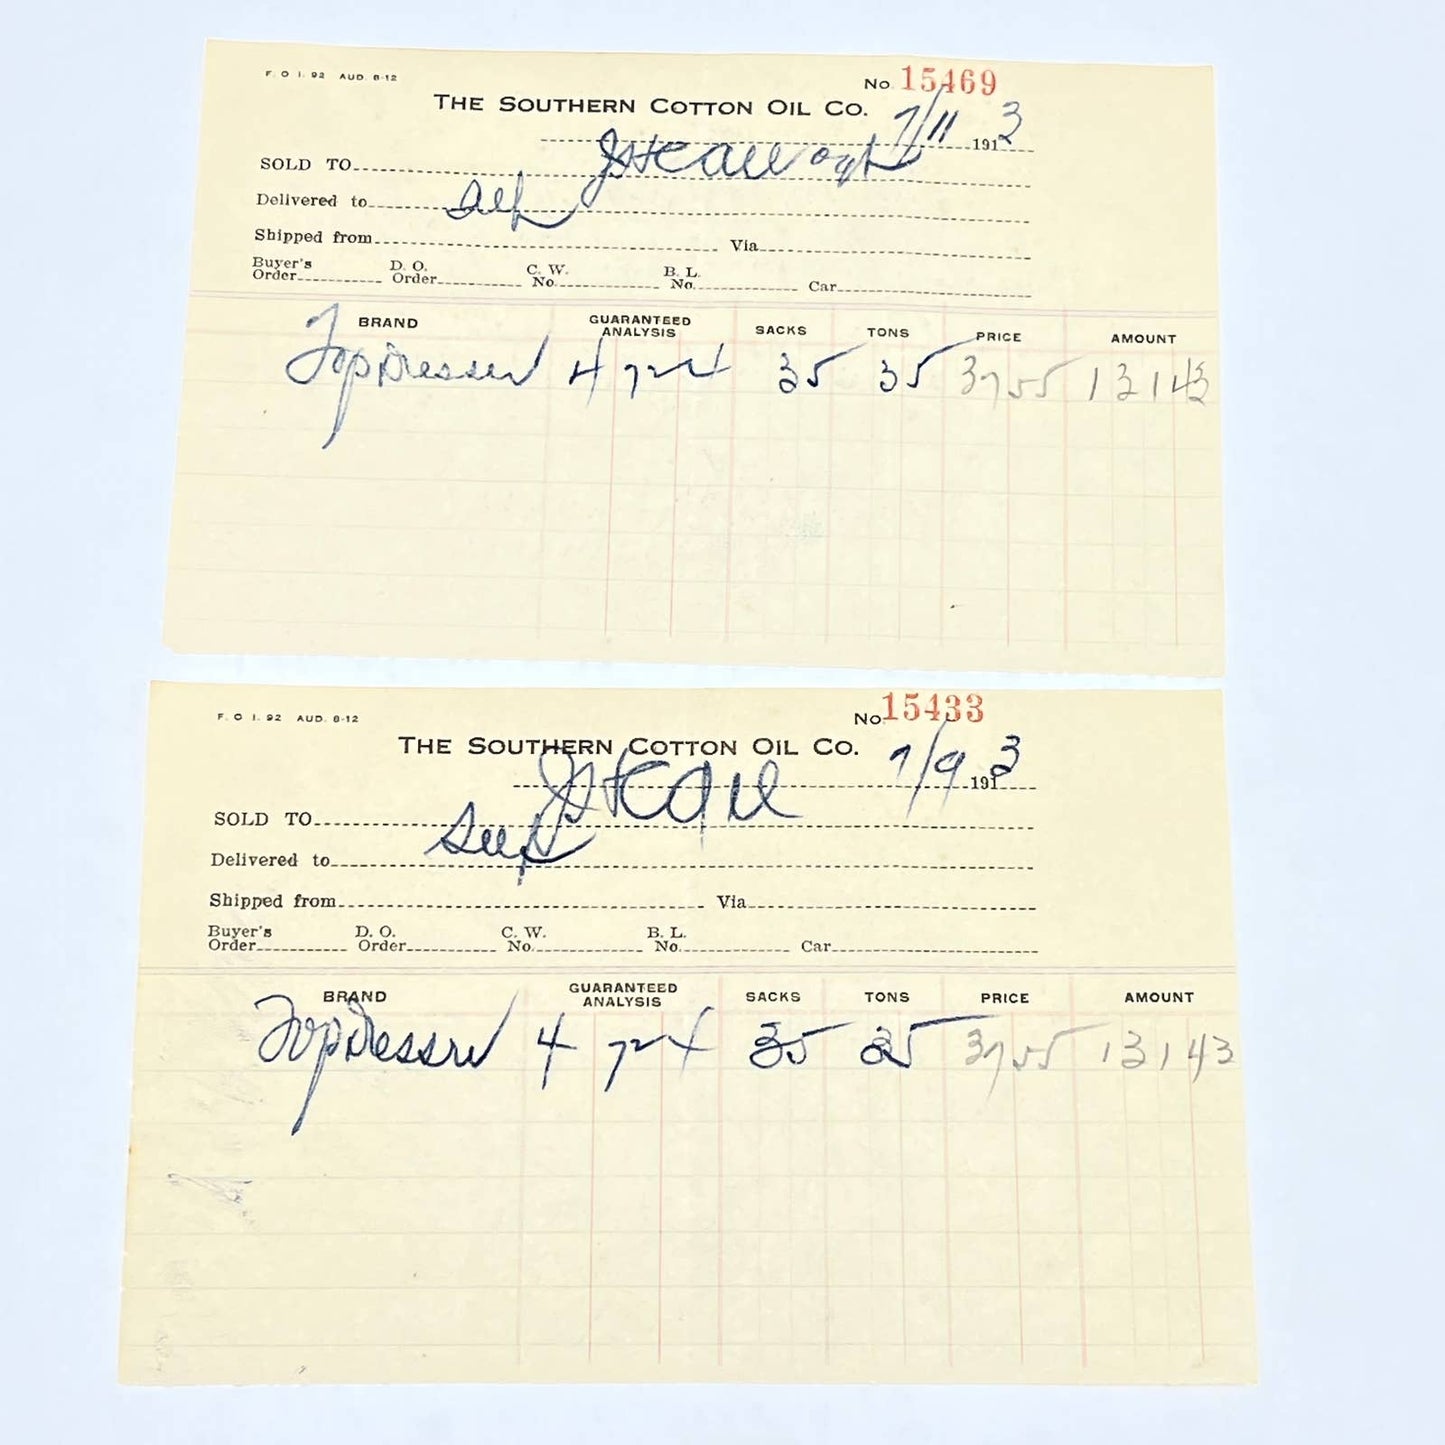 F. O. I. 92 AUD. 8-12
No. 15469
THE SOUTHERN COTTON OIL CO.
7/11 1913
SOLD TO
Delivered to Self
Shipped from Via
Buyer's Order D. O. Order C. W. No. B. L. No. Car
BRAND GUARANTEED ANALYSIS SACKS TONS PRICE AMOUNT
Top Dresser 4 7 2 4 35 35 37 55 131 43
F. O. I. 92 AUD. 8-12
No. 15433
THE SOUTHERN COTTON OIL CO.
7/9 1913
SOLD TO
Delivered to Self
Shipped from Via
Buyer's Order D. O. Order C. W. No. B. L. No. Car
BRAND GUARANTEED ANALYSIS SACKS TONS PRICE AMOUNT
Top Dresser 4 7 2 4 35 35 37 55 131 43